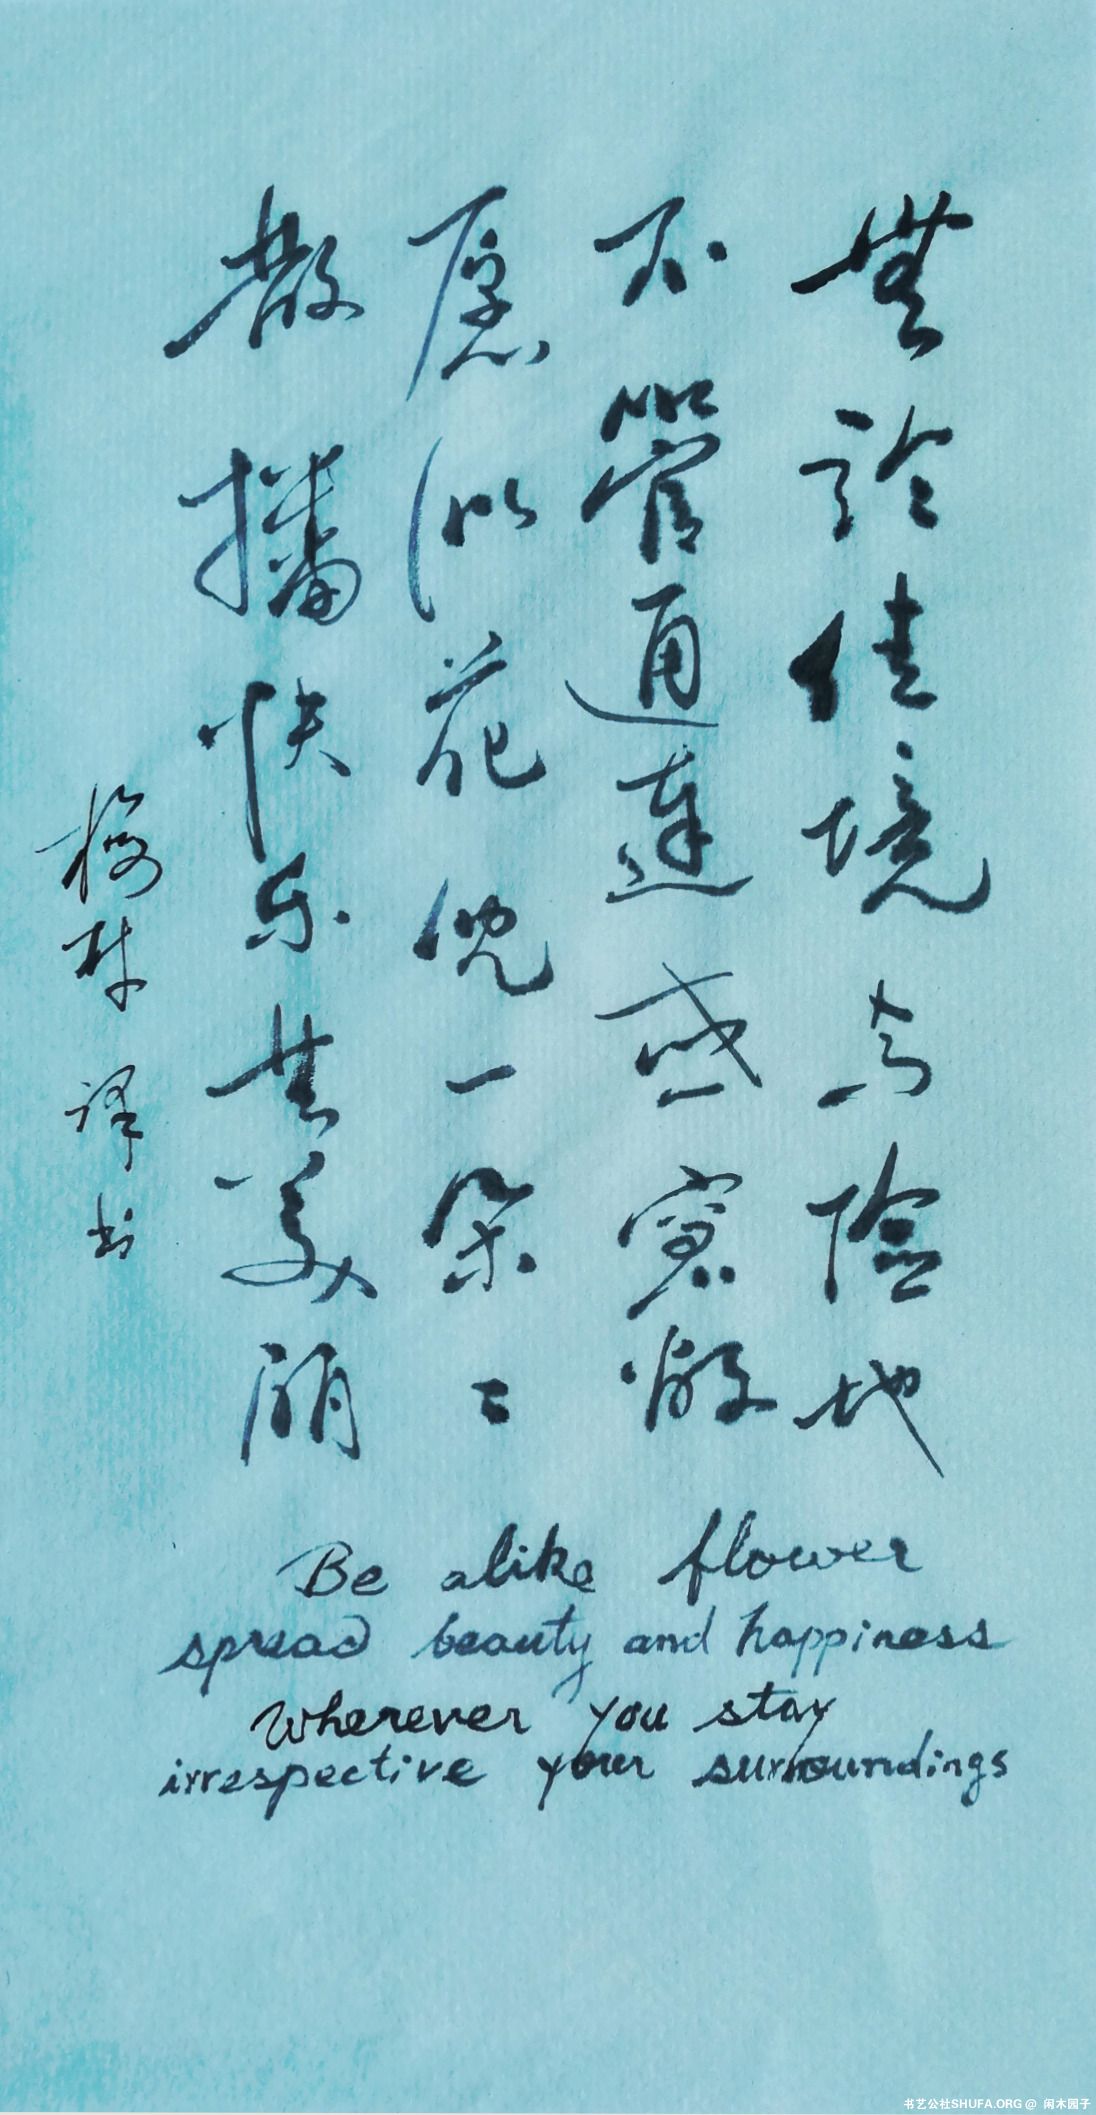 無論佳境與險地
不管通達或窮微
愿似花儿一朵〻
散播快乐共美丽
梅村译书
Be alike flower
spread beauty and happiness
Wherever you stay
irrespective your surroundings
书艺公社SHUFA.ORG @ 闲木园子